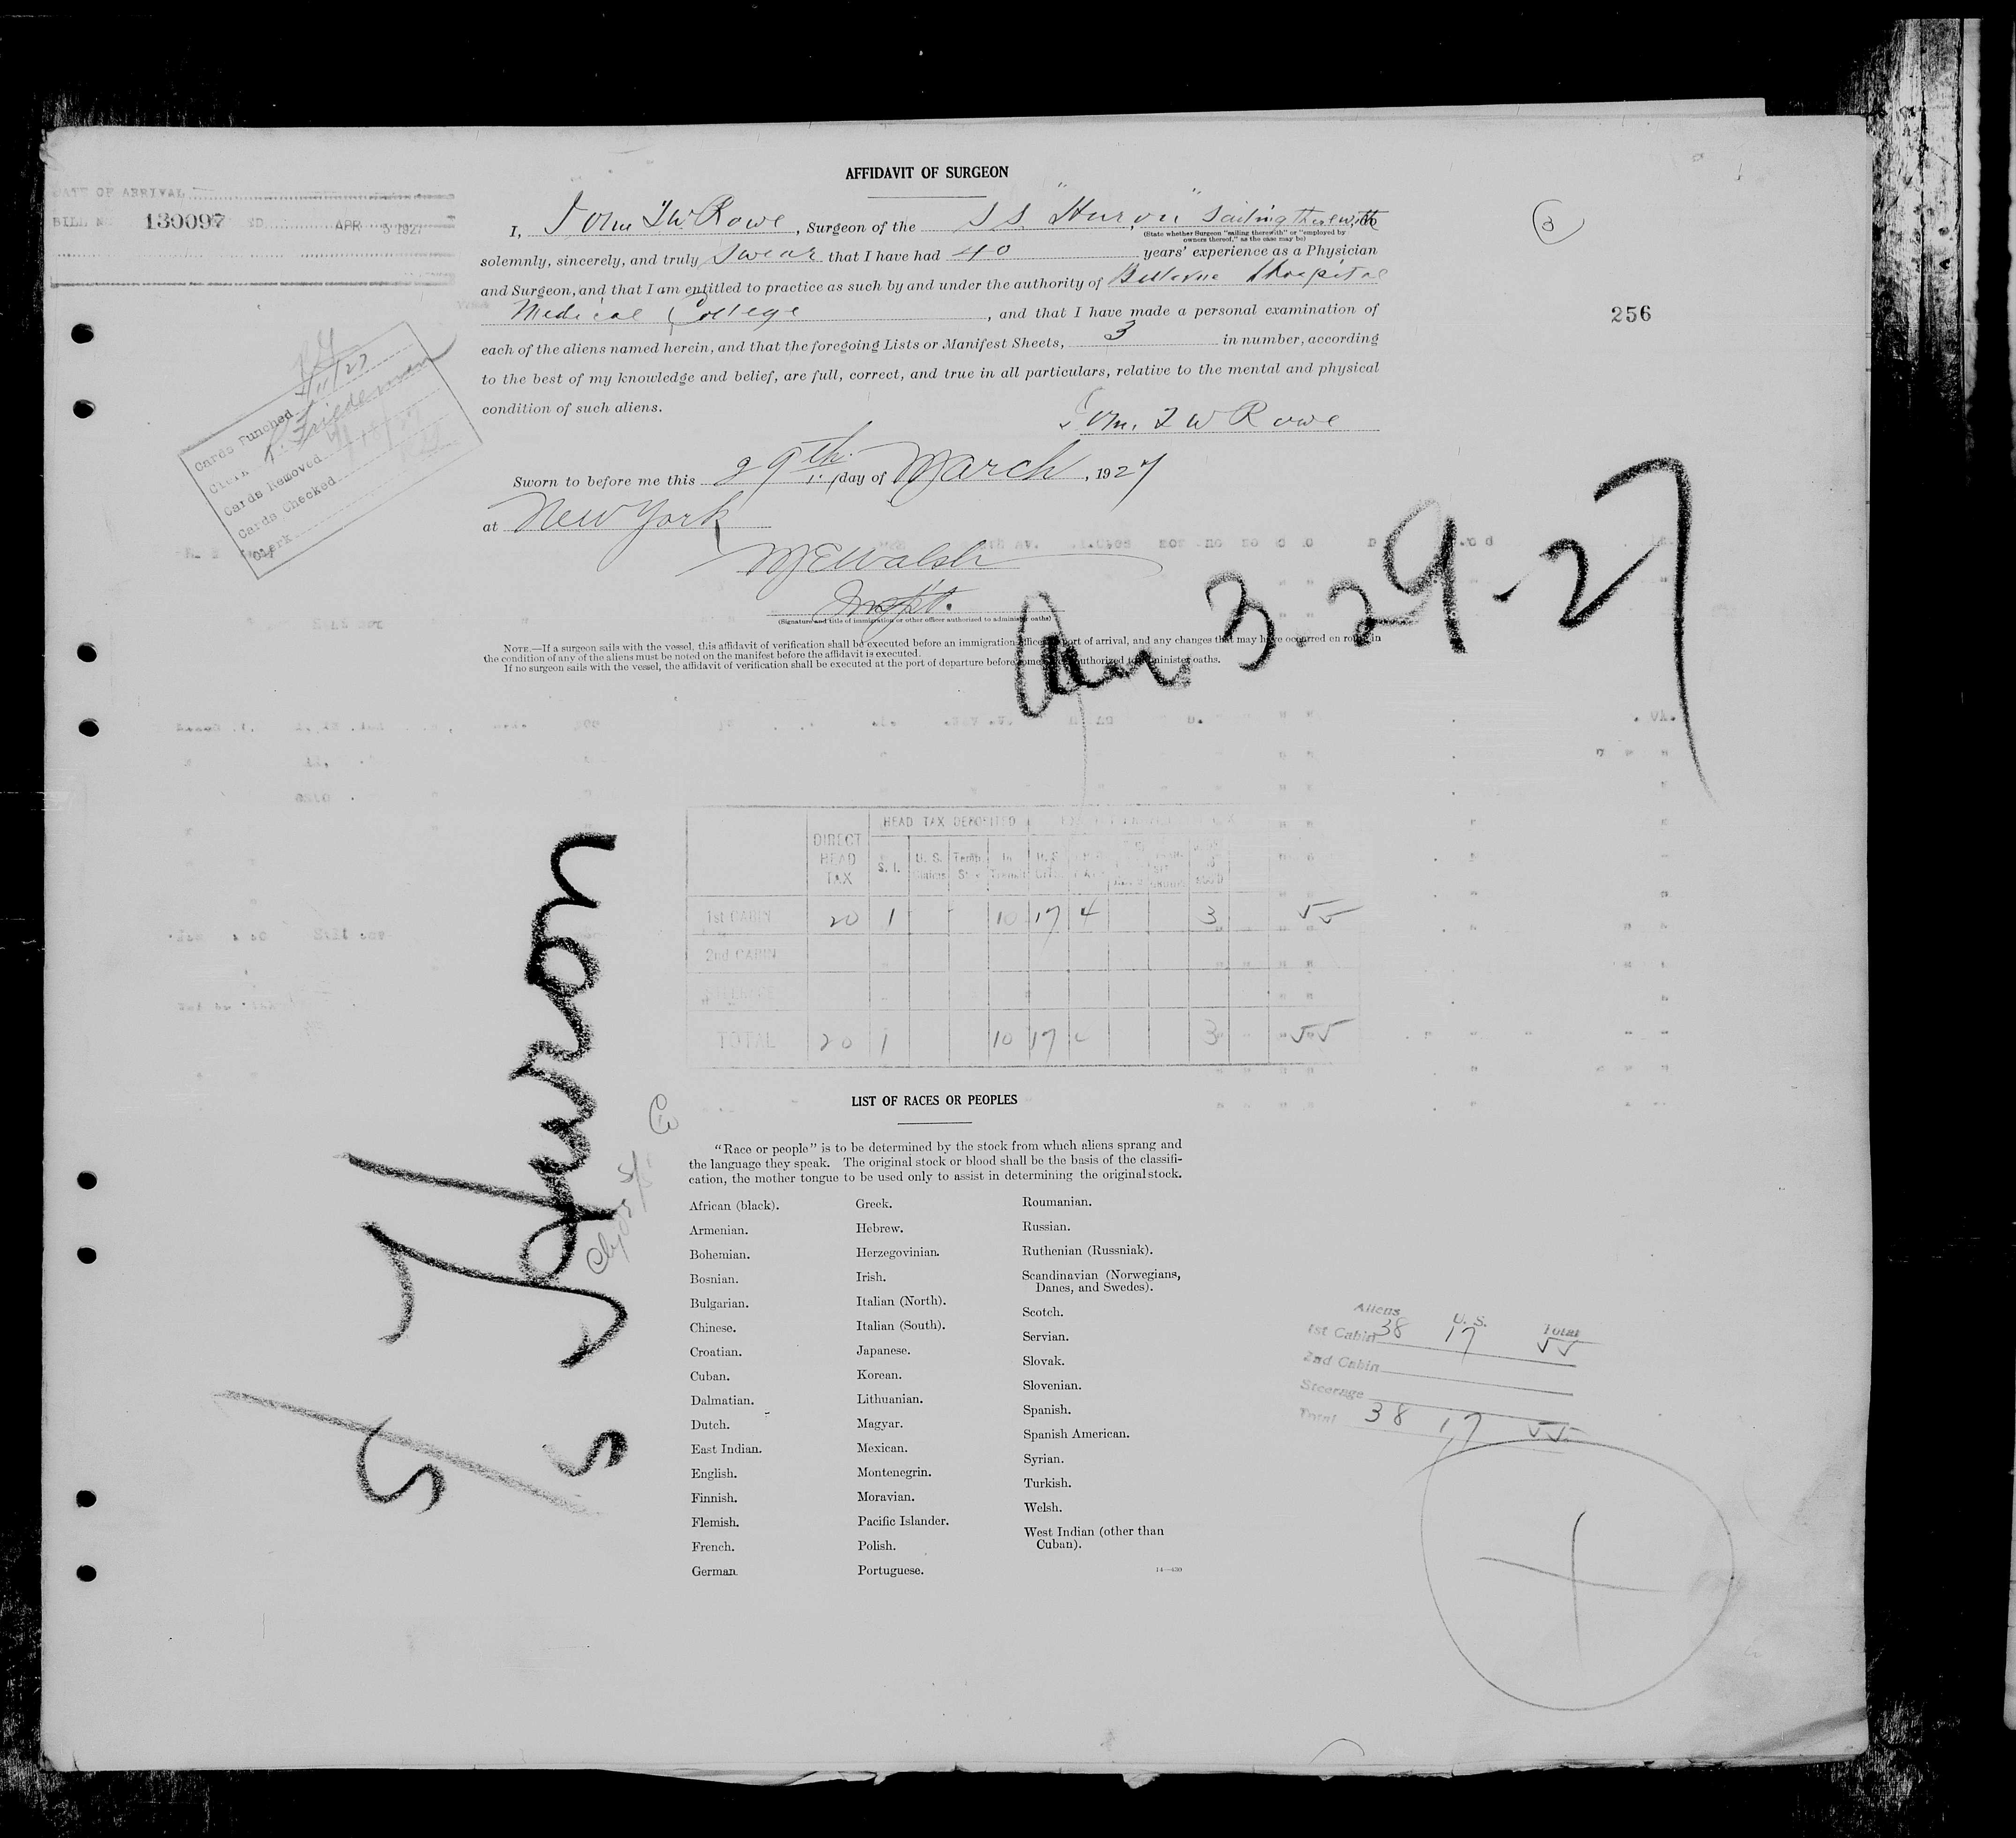 AFFIDAVIT OF SURGEON
DATE OF ARRIVAL
BILL No. 130097 APR 5 1927
I, John T W Rowe, Surgeon of the S S "Huron", Sailing therewith
(State whether Surgeon "sailing therewith" or "employed by
owners thereof," as the case may be)
3
solemnly, sincerely, and truly swear that I have had 40 years' experience as a Physician
and Surgeon, and that I am entitled to practice as such by and under the authority of Bellevue Hospital
Medical College, and that I have made a personal examination of
256
each of the aliens named herein, and that the foregoing Lists or Manifest Sheets, 3 in number, according
to the best of my knowledge and belief, are full, correct, and true in all particulars, relative to the mental and physical
condition of such aliens.
T W Rowe
Sworn to before me this 29th day of March, 1927
at New York
M E Walsh
Inspt.
(Signature and title of immigration or other officer authorized to administer oaths)
Cards Punched 4/11/27
Clerk Friedeman
Cards Removed
Cards Checked
Clerk
NOTE.—If a surgeon sails with the vessel, this affidavit of verification shall be executed before an immigration officer port of arrival, and any changes that may have occurred en route in
the condition of any of the aliens must be noted on the manifest before the affidavit is executed.
If no surgeon sails with the vessel, the affidavit of verification shall be executed at the port of departure before authorized to administer oaths.
Arr. 3-29-27
S/S Huron
Clyde S/S Co
HEAD TAX DEPOSITED
DIRECT HEAD TAX S. I. U. S. Temp. In U. S.
1st CABIN 20 1 10 17 4 3 55
2nd CABIN
STEERAGE
TOTAL 20 1 10 17 4 3 55
LIST OF RACES OR PEOPLES
"Race or people" is to be determined by the stock from which aliens sprang and
the language they speak. The original stock or blood shall be the basis of the classifi-
cation, the mother tongue to be used only to assist in determining the original stock.
African (black).
Armenian.
Bohemian.
Bosnian.
Bulgarian.
Chinese.
Croatian.
Cuban.
Dalmatian.
Dutch.
East Indian.
English.
Finnish.
Flemish.
French.
German.
Greek.
Hebrew.
Herzegovinian.
Irish.
Italian (North).
Italian (South).
Japanese.
Korean.
Lithuanian.
Magyar.
Mexican.
Montenegrin.
Moravian.
Pacific Islander.
Polish.
Portuguese.
Roumanian.
Russian.
Ruthenian (Russniak).
Scandinavian (Norwegians,
Danes, and Swedes).
Scotch.
Servian.
Slovak.
Slovenian.
Spanish.
Spanish American.
Syrian.
Turkish.
Welsh.
West Indian (other than
Cuban).
14—430
Aliens U. S. Total
1st Cabin 38 17 55
2nd Cabin
Steerage
Total 38 17 55